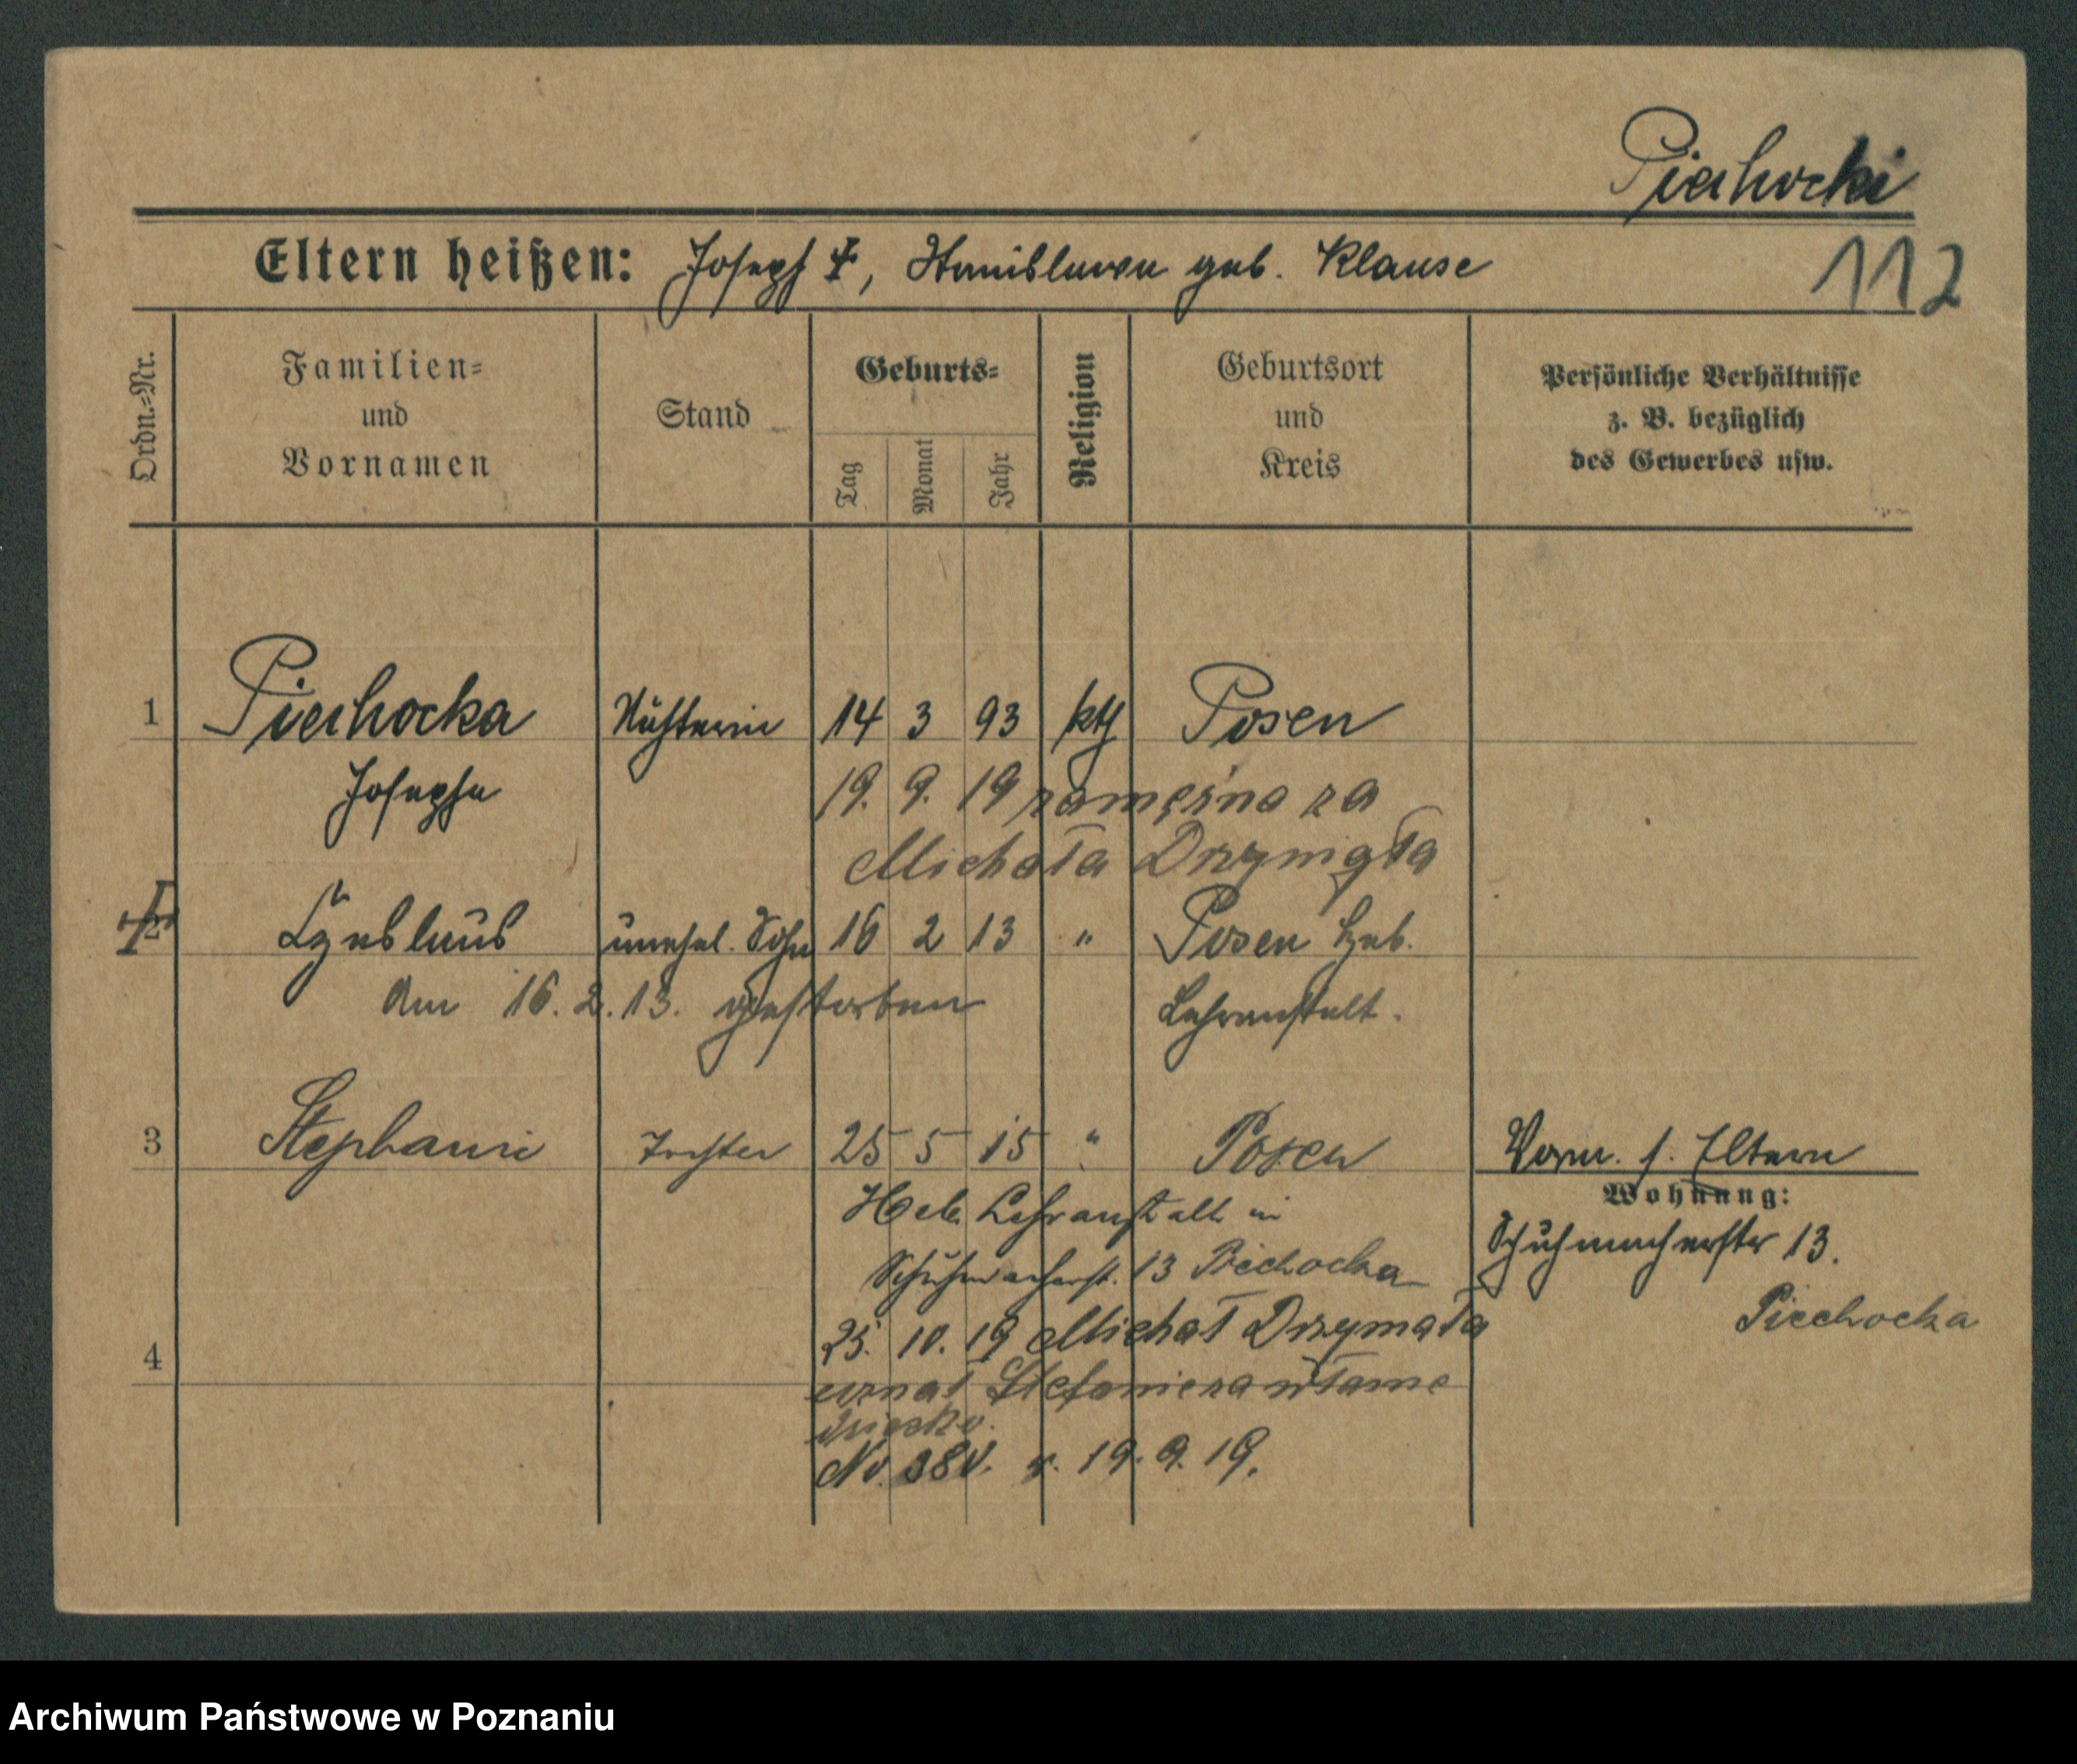 Piechocki
Eltern heißen: Joseph †, Stanislawa geb. Klause
112
Ordn.-Nr.
Familien-
und
Vornamen
Stand
Geburts-
Tag
Monat
Jahr
Religion
Geburtsort
und
Kreis
Persönliche Verhältnisse
z. B. bezüglich
des Gewerbes usw.
1 Piechocka Näherin 14 3 93 kth Posen
Josepha
19. 9. 19 zamęźna za
Michała Drzymała
† Czeslaus unehel. Sohn 16 2 13 " Posen Heb.
Am 16. 2. 13. gestorben Lehranstalt.
3 Stephanie Tochter 25 5 15 " Posen
Vorm. s. Eltern
Wohnung:
Heb. Lehranstalt in
Schuhmacherstr. 13.
Schuhmacherst. 13 Piechocka
Piechocka
25. 10. 19 Michał Drzymała
4
uznał Stefanie za własne
dziecko.
No. 380. v. 19. 9. 19.
Archiwum Państwowe w Poznaniu